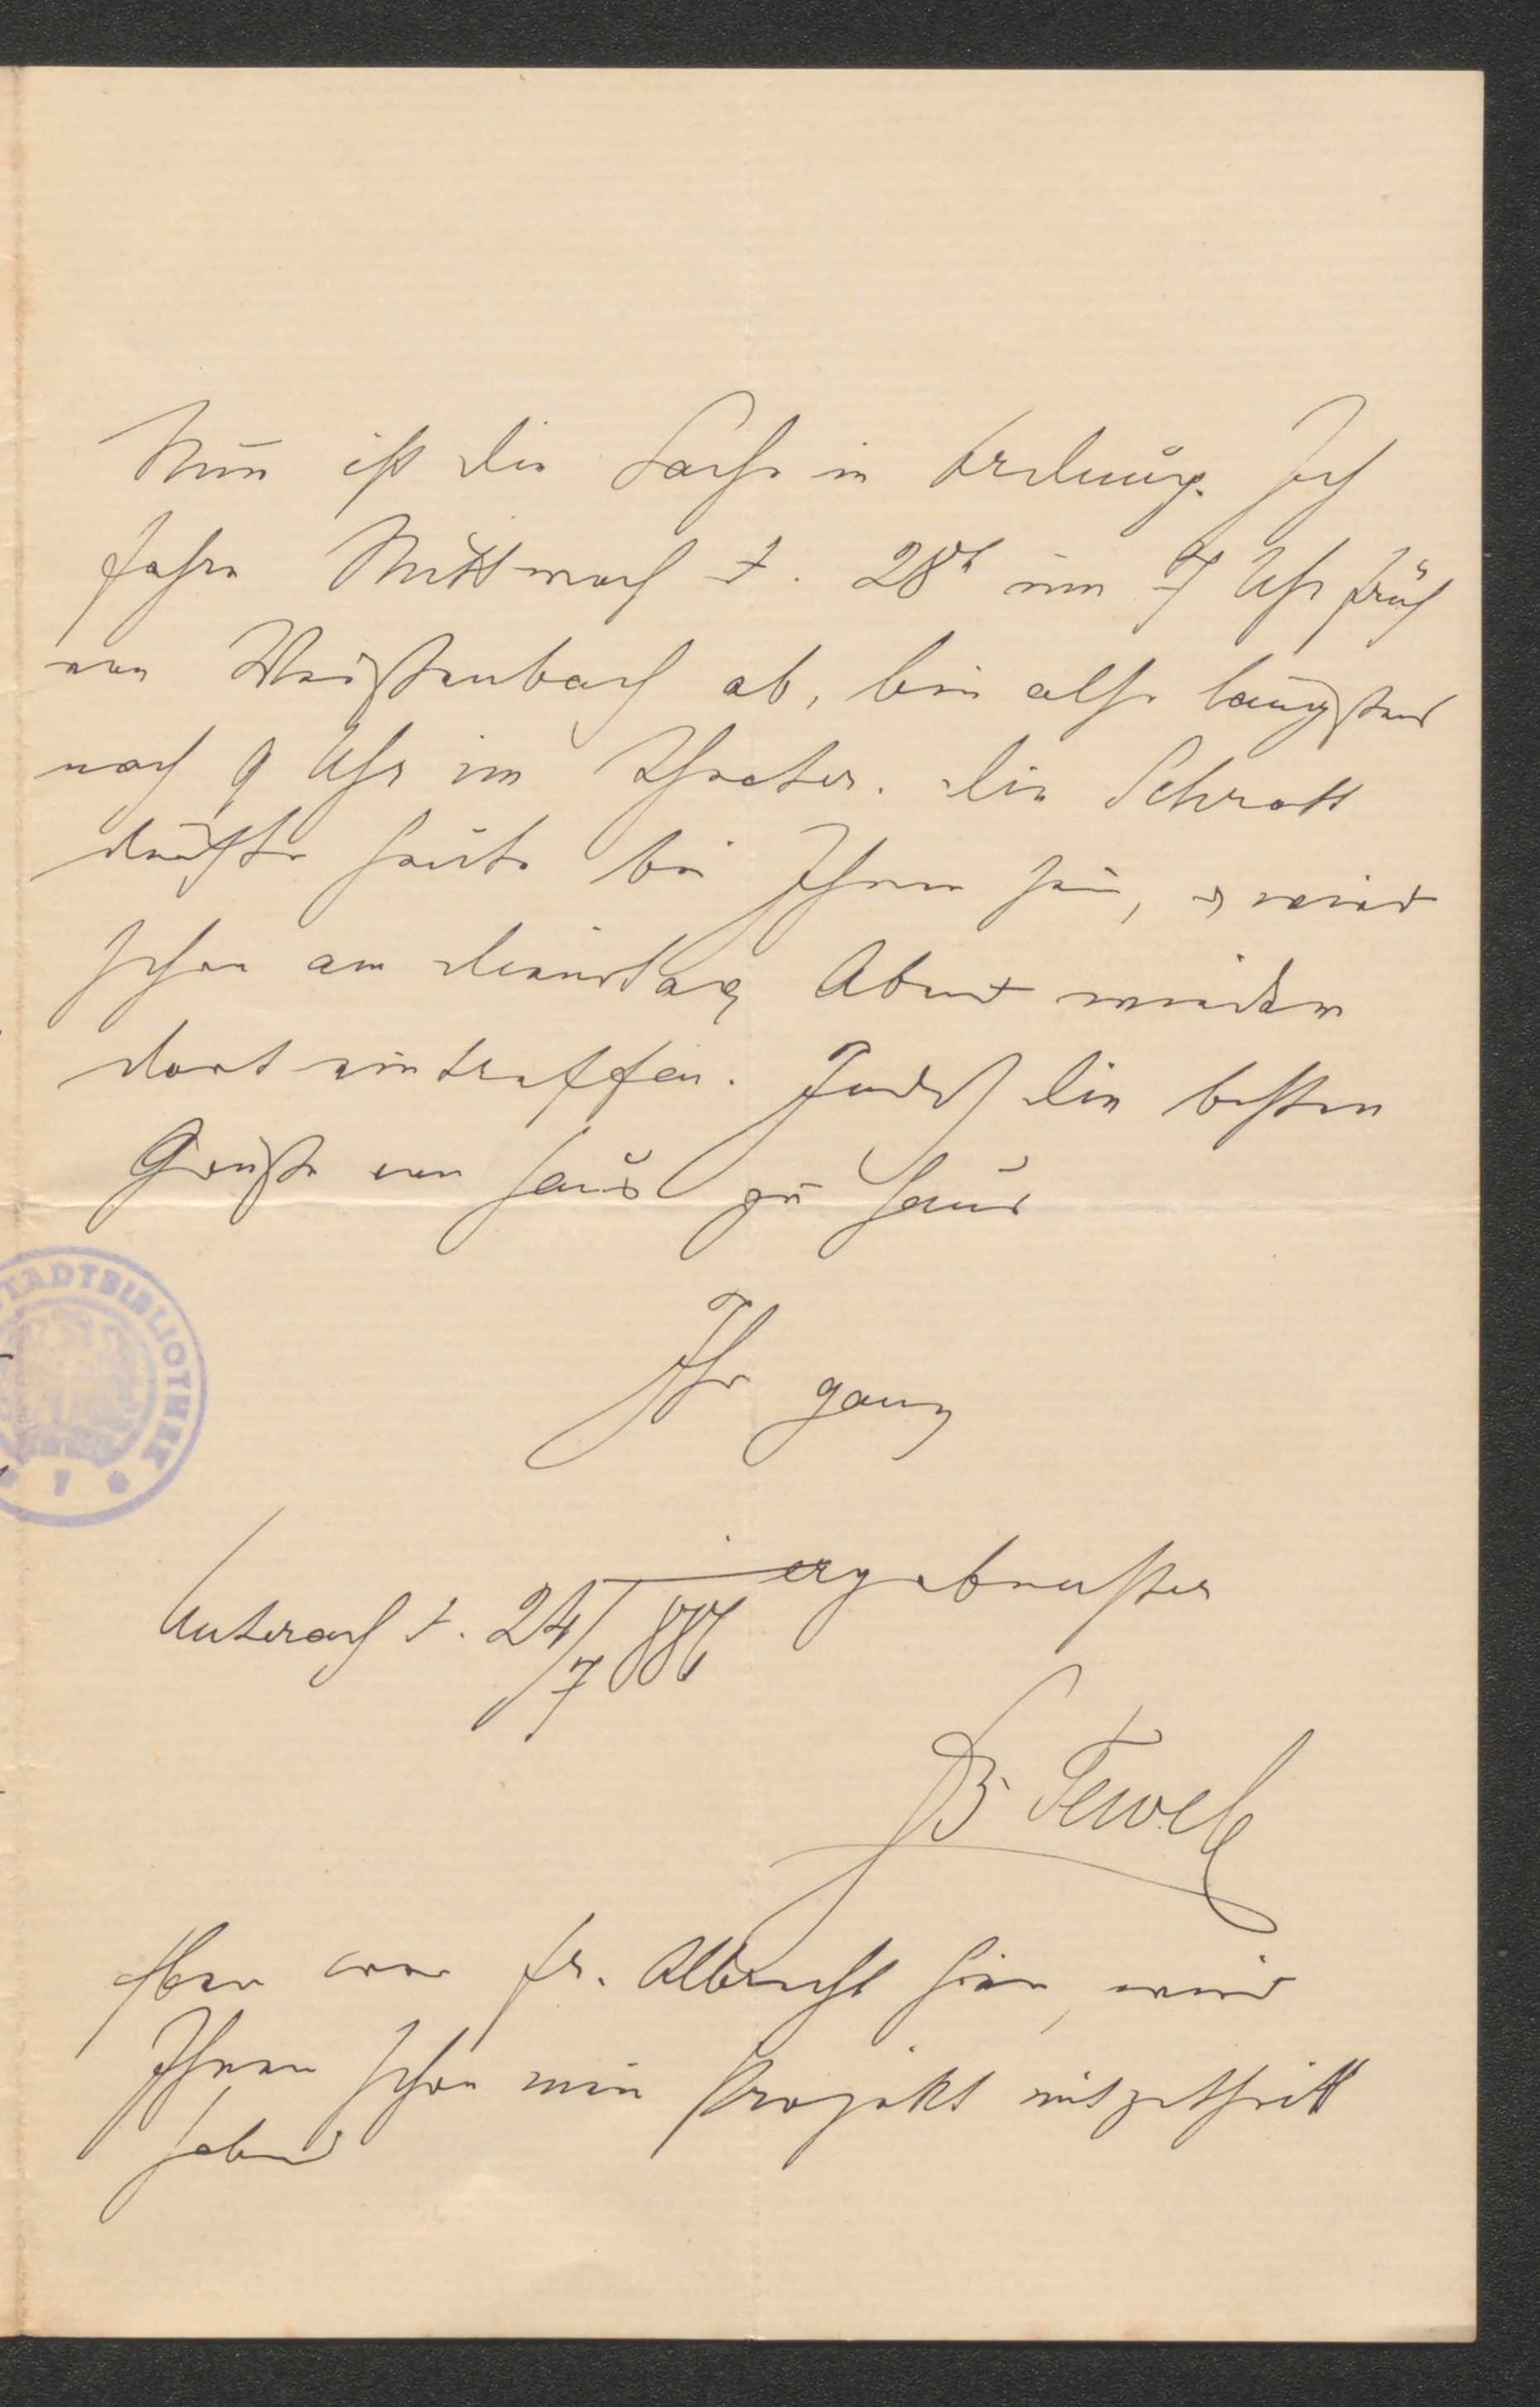 Nun ist die Sache in Ordnung. Ich
fahre Mittwoch d. 28t um 7 Uhr früh
von Weißenbach ab, bin also längstens
nach 9 Uhr im Theater. Die Schratt
dürfte heute bei Ihnen sein, u wird
schon am Dienstag Abend wieder
dort eintreffen. Indeß die besten
Grüße von Haus zu Haus
Ihr ganz
ergebenster
Unterach d. 24/7 886
F Tewele
Eben war Fr. Albrecht hier, wird
Ihnen schon mein Projekt mitgetheilt
haben
STADTBIBLIOTHEK
* 7 *